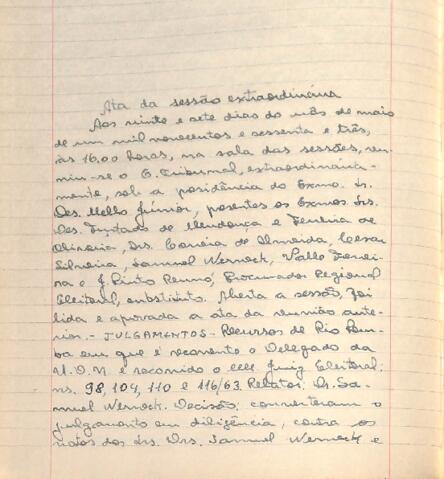 Ata da sessão extraordinária
Aos vinte e sete dias do mês de maio
de um mil novecentos e sessenta e três,
às 16,00 horas, na sala das sessões, reu-
niu-se o E. Tribunal, extraordinária-
mente, sob a presidência do Exmo. Sr.
Des. Mello Júnior, presentes os Exmos. Srs.
Des. Furtado de Mendonça e Ferreira de
Oliveira, Drs. Correia de Almeida, Cesar
Silveira, Samuel Werneck, Vallo Ferrei-
ra e J. Pinto Renno, Procurador Regional
Eleitoral, substituto. Aberta a sessão, foi
lida e aprovada a ata da reunião ante-
rior. - JULGAMENTOS - Recursos de Rio Pom-
ba em que é recorrente o Delegado da
U.D.N. e recorrido o Juiz Eleitoral;
ns. 98, 104, 110 e 116/63. Relator: Dr. Sa-
muel Werneck. Decisão: converteram o
julgamento em diligência, contra os
votos dos Srs. Drs. Samuel Werneck e